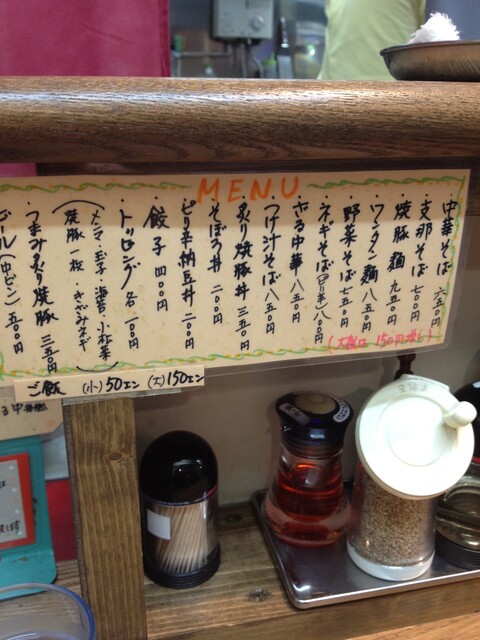 MENU
・中華そば 六五〇
・支那そば 七〇〇円
・焼豚麺 九五〇円
・ワンタン麺 八五〇円
・野菜そば 七五〇円
・ネギそば(ピリ辛) 八〇〇円
・ざる中華 八五〇円
・つけ汁そば 八五〇円
・炙り焼豚丼 三五〇円
・そぼろ丼 二〇〇円
・ピリ辛納豆丼 二〇〇円
・餃子 四〇〇円
・トッピング 各一〇〇円
(メンマ・玉子・海苔・小松菜
焼豚一枚・きざみネギ)
・つまみ炙り焼豚 三五〇円
ビール(中ビン) 五〇〇円
(大盛り 150円増し)
ご飯 (小)50エン (大)150エン